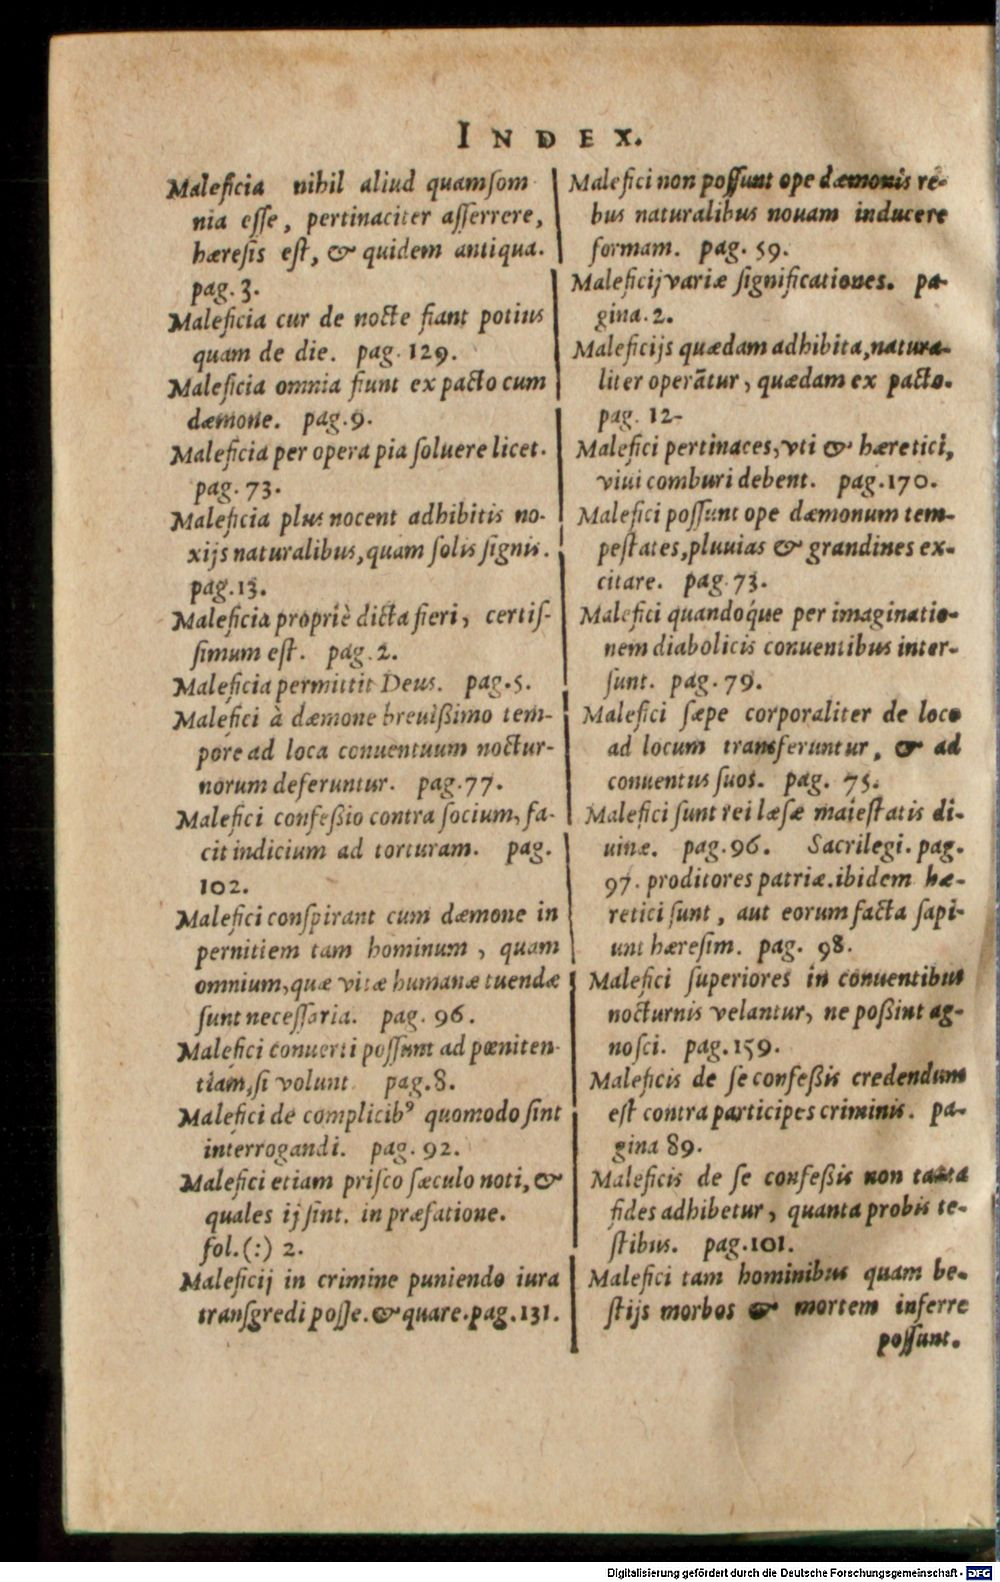 INDEX.
Maleficia nihil aliud quamſom
nia eſſe, pertinaciter aſſerrere,
hæreſis eſt, & quidem antiqua.
pag. 3.
Maleficia cur de nocte fiant potius
quam de die. pag. 129.
Maleficia omnia fiunt ex pacto cum
dæmone. pag. 9.
Maleficia per opera pia ſoluere licet.
pag. 73.
Maleficia plus nocent adhibitis no-
xijs naturalibus, quam ſolis ſignis.
pag. 13.
Maleficia propriè dicta fieri, certiſ-
ſimum eſt. pag. 2.
Maleficia permittit Deus. pag. 5.
Malefici à dæmone breuißimo tem-
pore ad loca conuentuum noctur-
norum deferuntur. pag. 77.
Malefici confeßio contra ſocium, fa-
cit indicium ad torturam. pag.
102.
Malefici conſpirant cum dæmone in
pernitiem tam hominum, quam
omnium, quæ vitæ humanæ tuendæ
ſunt neceſſaria. pag. 96.
Malefici conuerti poſſunt ad pœniten-
tiam, ſi volunt pag. 8.
Malefici de complicibꝰ quomodo ſint
interrogandi. pag. 92.
Malefici etiam priſco ſæculo noti, &
quales ij ſint. in præfatione.
fol. (:) 2.
Maleficij in crimine puniendo iura
tranſgredi poſſe. & quare. pag. 131.
Malefici non poſſunt ope dæmonis re-
bus naturalibus nouam inducere
formam. pag. 59.
Maleficij variæ ſignificationes. pa-
gina. 2.
Maleficijs quædam adhibita, natura-
liter operãtur, quædam ex pacto.
pag. 12-
Malefici pertinaces, vti & hæretici,
viui comburi debent. pag. 170.
Malefici poſſunt ope dæmonum tem-
peſtates, pluuias & grandines ex-
citare. pag. 73.
Malefici quandoq́ue per imaginatio-
nem diabolicis conuentibus inter-
ſunt. pag. 79.
Malefici ſæpe corporaliter de loco
ad locum transferuntur, & ad
conuentus ſuos. pag. 75.
Malefici ſunt rei læſæ maieſtatis di-
uinæ. pag. 96. Sacrilegi. pag.
97. proditores patriæ. ibidem hæ-
retici ſunt, aut eorum facta ſapi-
unt hæreſim. pag. 98.
Malefici ſuperiores in conuentibus
nocturnis velantur, ne poßint ag-
noſci. pag. 159.
Maleficis de ſe confeßis credendum
eſt contra participes criminis. pa-
gina 89.
Maleficis de ſe confeßis non tanta
fides adhibetur, quanta probis te-
ſtibus. pag. 101.
Malefici tam hominibus quam be-
ſtijs morbos & mortem inferre
poſſunt.
Digitalisierung gefördert durch die Deutsche Forschungsgemeinschaft - DFG